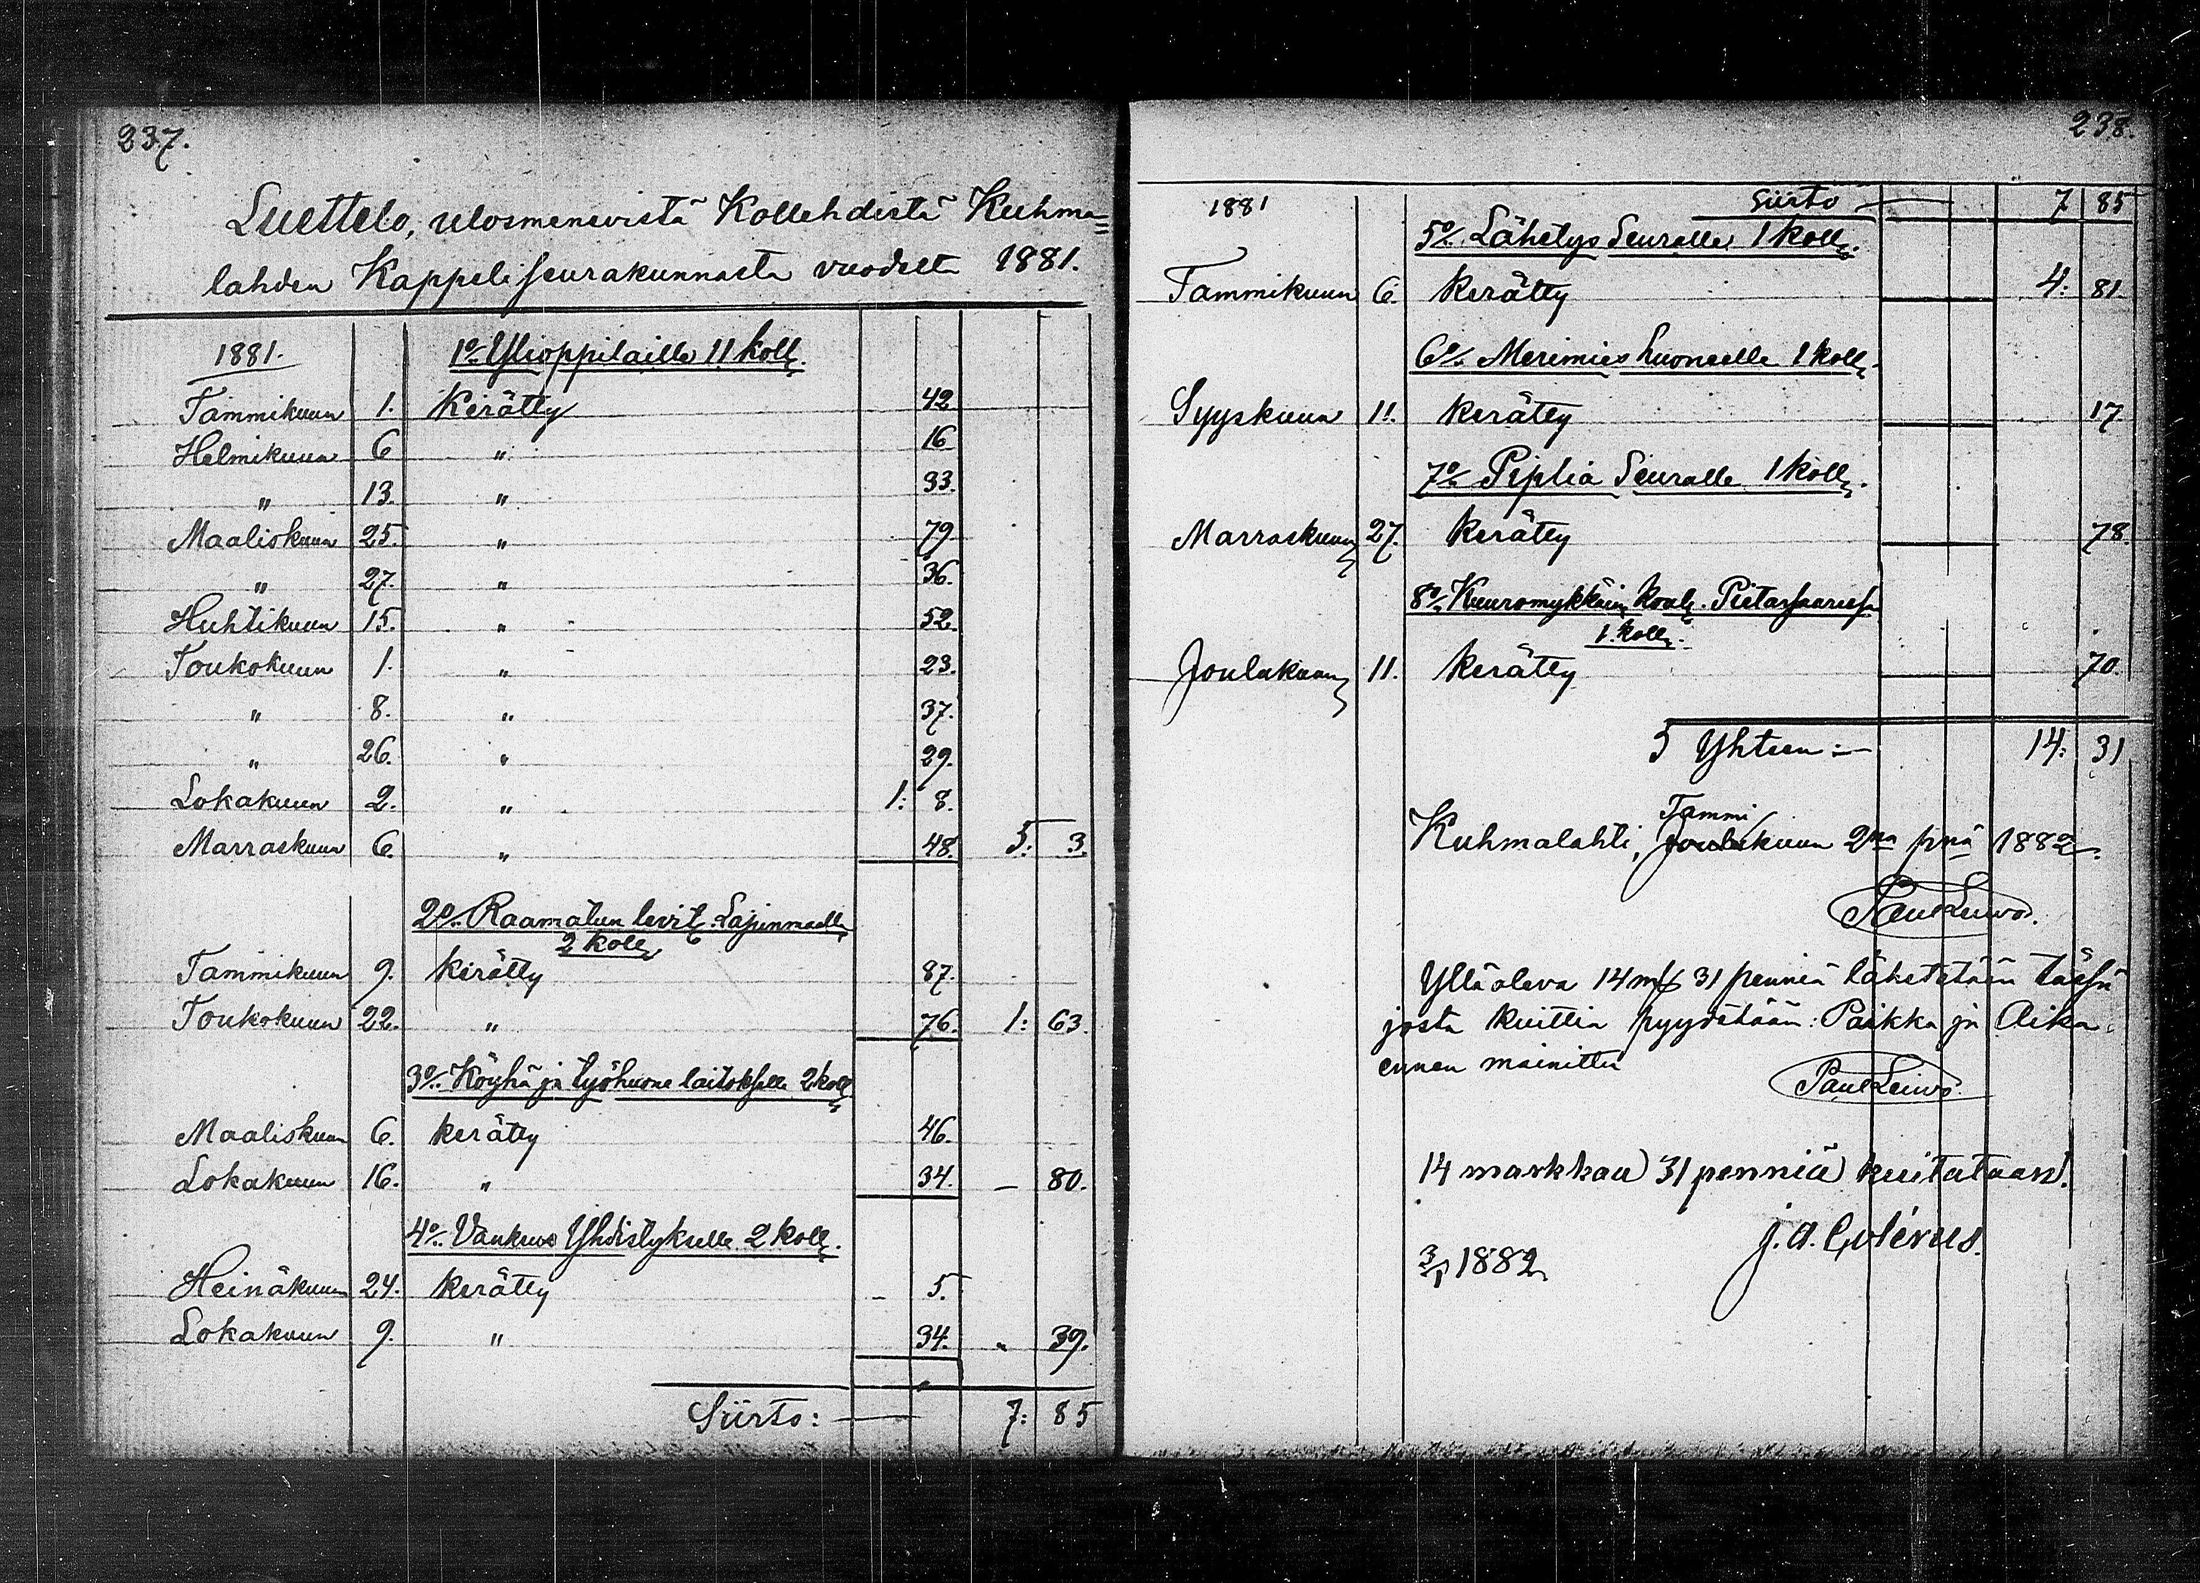 237.
Luettelo, ulosmenevistä Kollehdista Kuhma=
lahden Kappeliseurakunnasta vuodelta 1881.
1881. 1o/. Ylioppilaille 11 koll.
Tammikuun 1. Kerätty 42
Helmikuun 6 " 16
" 13. " 33.
Maaliskuun 25. " 79
" 27. " 36.
Huhtikuun 15. " 52.
Toukokuun 1. " 23.
" 8. " 37.
" 26. " 29.
Lokakuun 2. " 1: 8.
Marraskuun 6. " 48. 5: 3.
2o/. Raamatun levit. Lapinmaalla
2 koll.
Tammikuun 9. kerätty 87.
Toukokuun 22. " 76. 1: 63.
3o/. Köyhä ja työhuone laitokselle 2 koll.
Maaliskuun 6. kerätty 46.
Lokakuun 16. " 34. – 80.
4o/. Vankeus Yhdistykselle 2 koll.
Heinäkuun 24. kerätty – 5.
Lokakuun 9. " 34. " 39.
Siirto: — 7: 85
238.
1881 Siirto — 7 85
5o/. Lähetys Seuralle 1 koll.
Tammikuun 6. kerätty 4: 81.
6o/. Merimies huoneelle 1 koll.
Syyskuun 11. kerätty 17.
7o/. Piplia Seuralle 1 koll.
Marraskuun 27. kerätty 78.
8o/. Kuuromykkäin koul. Pietarsaaressa
1. koll.
Joulukuun 11. kerätty 70.
Yhteen :— 14: 31
Tammi
Kuhmalahti, Joulukuun 2na pnä 1882.
Paul Leivo.
Ylläoleva 14 mk 31 penniä lähetetään tässä
josta kuittia pyydetään: Paikka ja Aika
ennen mainittu
Paul Leivo.
14 markkaa 31 penniä kuitataan.
J. A.
3/1 1882